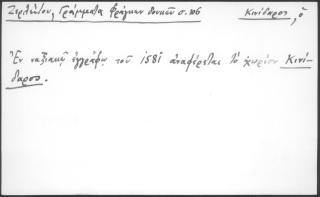 Ζερλέντου, Γράμματα Φράγκων δουκῶν σ. 106 Κινίδαρος, ὁ
Ἐν ναξιακῷ ἐγγράφῳ τοῦ 1581 ἀναφέρεται τὸ χωρίον Κινί-
δαρος.